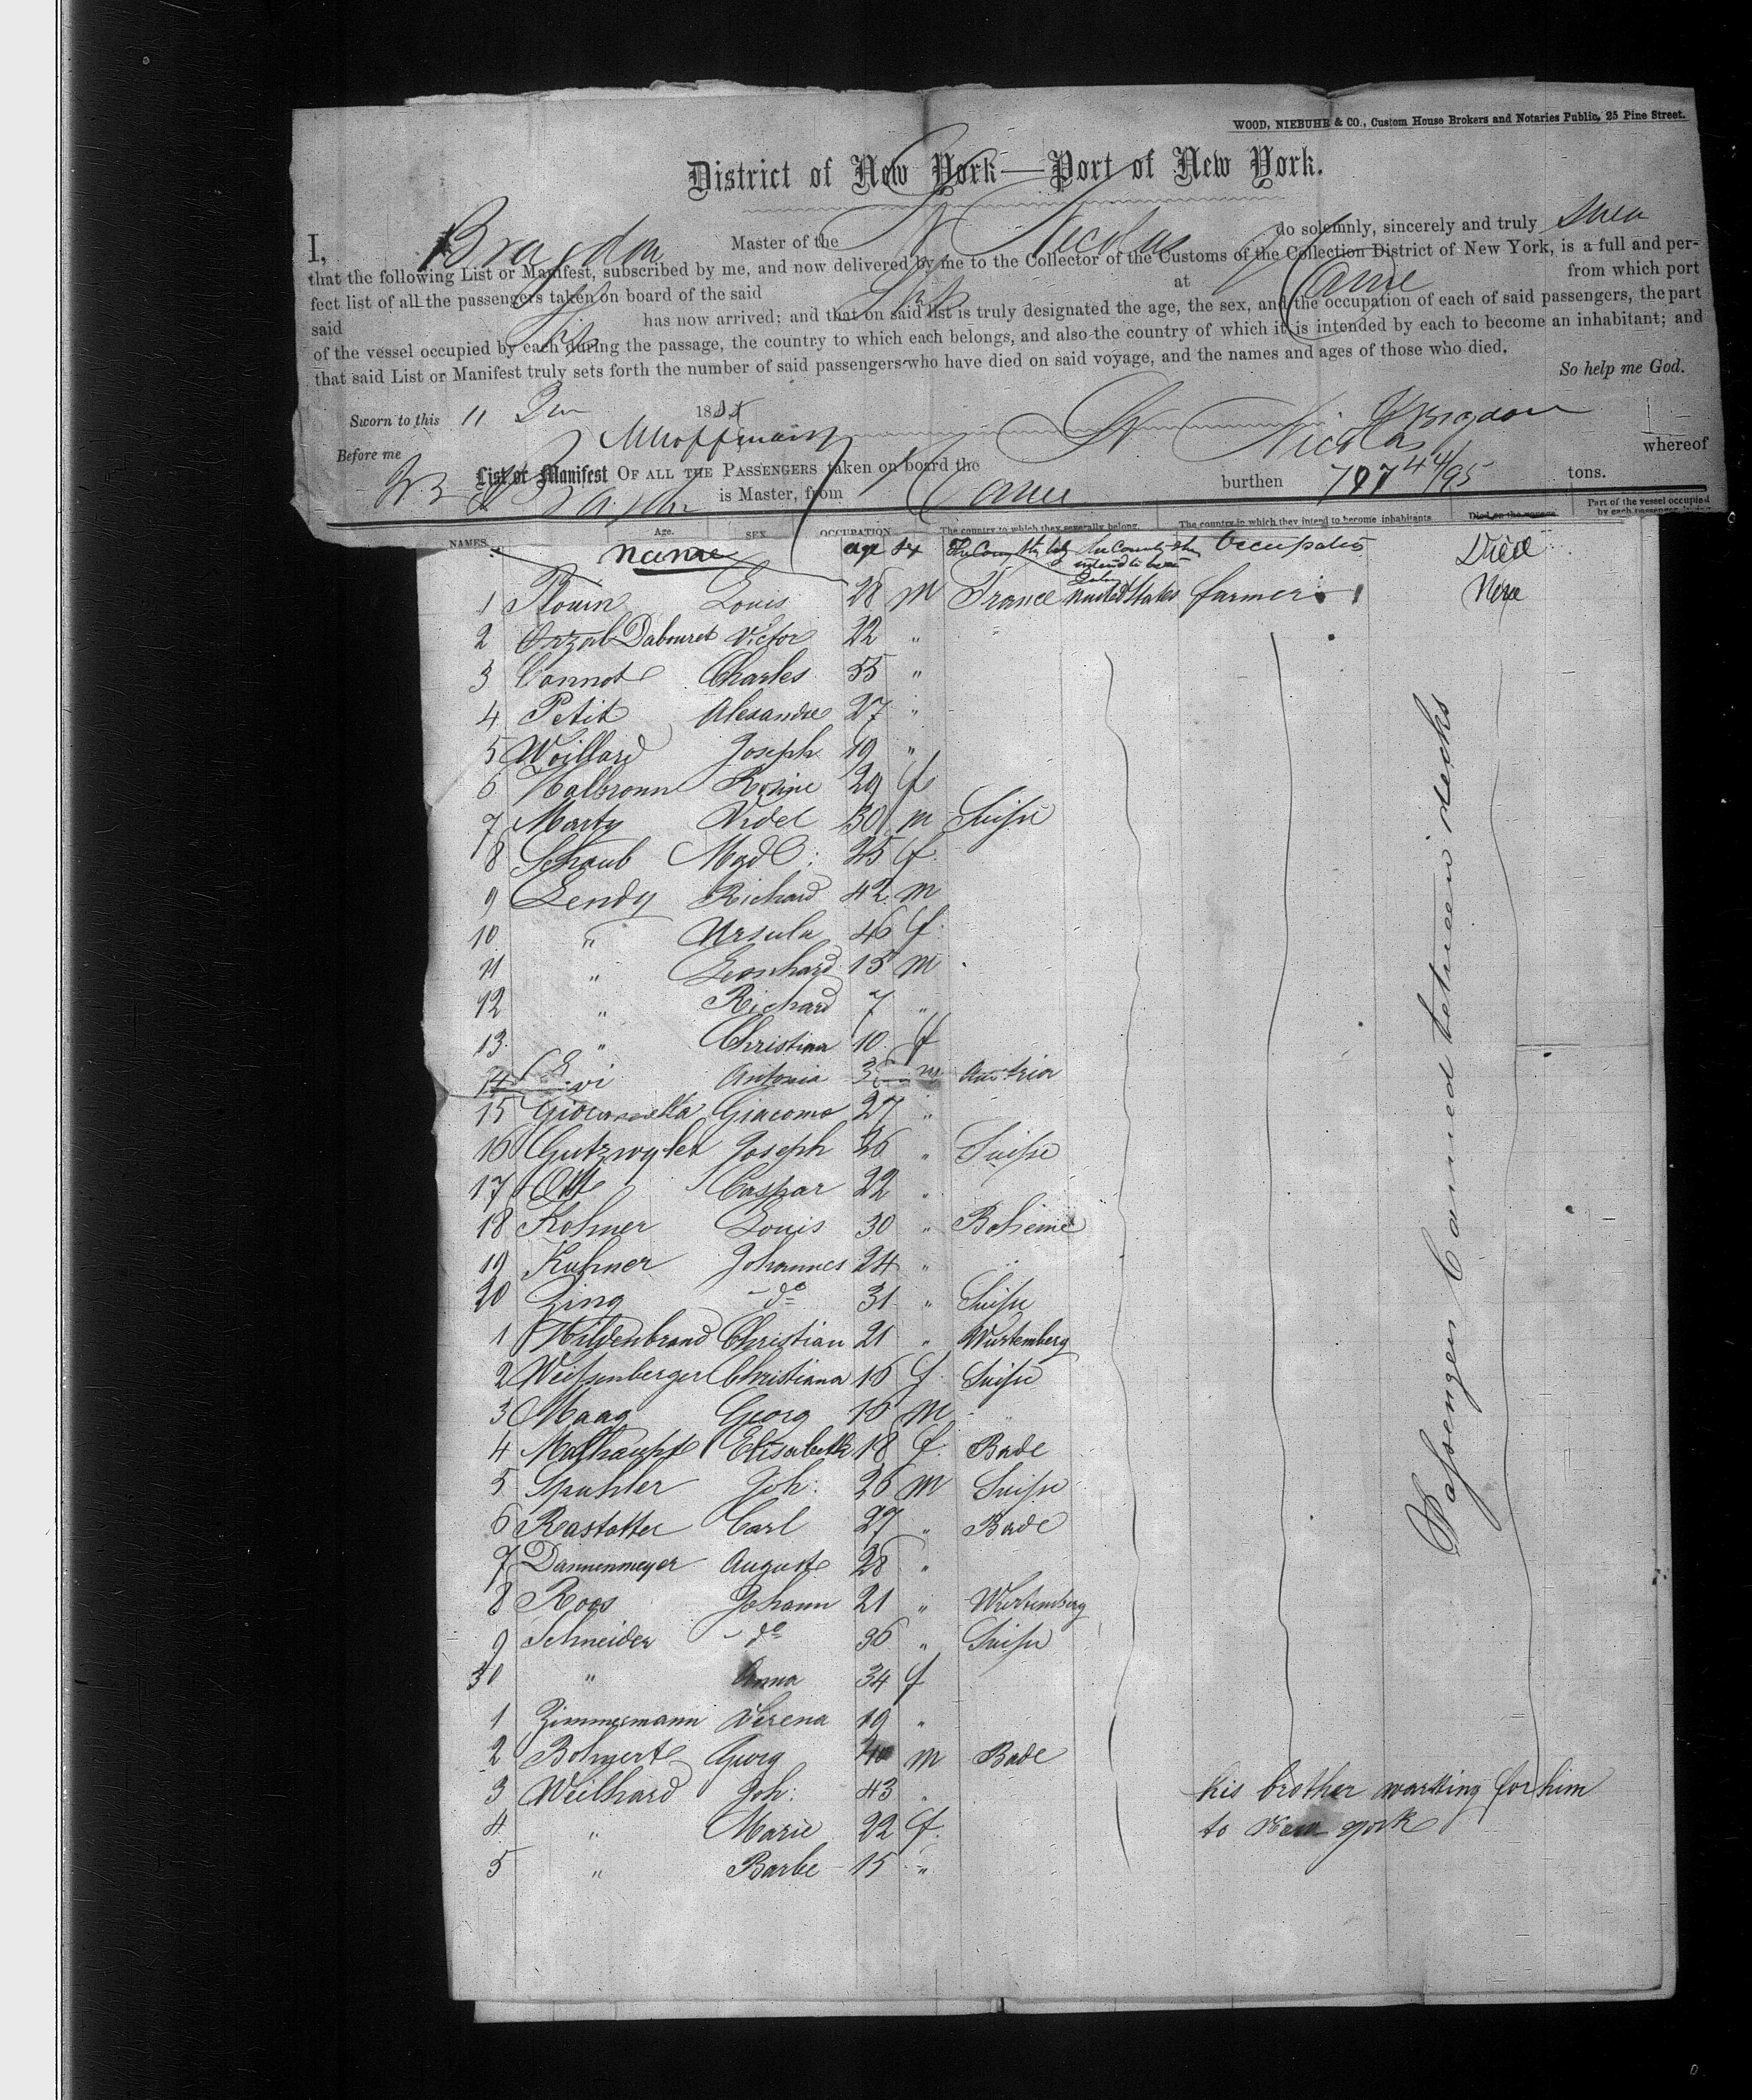 WOOD, NIEBUHR & CO., Custom House Brokers and Notaries Public, 25 Pine Street.
District of New York—Port of New York.
I, Bragdon Master of the St Nicolas do solemnly, sincerely and truly swear
that the following List or Manifest, subscribed by me, and now delivered by me to the Collector of the Customs of the Collection District of New York, is a full and per-
fect list of all the passengers taken on board of the said Ship at Havre from which port
said Ship has now arrived; and that on said list is truly designated the age, the sex, and the occupation of each of said passengers, the part
of the vessel occupied by each during the passage, the country to which each belongs, and also the country of which it is intended by each to become an inhabitant; and
that said List or Manifest truly sets forth the number of said passengers who have died on said voyage, and the names and ages of those who died.
So help me God.
Sworn to this 11 18 Bragdon
Before me
List or Manifest OF ALL THE PASSENGERS taken on board the St Nicolas whereof
Bragdon is Master, from Havre burthen 797 44/95 tons.
NAMES. Age. SEX OCCUPATION The country to which they severally belong. The country in which they intend to become inhabitants Died on the voyage. Part of the vessel occupied
name age sex Occupation Died
1 Plouin Louis 28 m France United States farmer None
2 Dabouret Victor 22 "
3 Connot Charles 55 "
4 Petit Alexandre 27 "
5 Woillard Joseph 19 "
6 Halbronn Rosine 29 f
7 Marty Fidel 30 m Suisse
8 Schaub Magd: 25 f
9 Lendy Richard 42 m
10 " Ursula 46 f
11 " Leonhard 15 m
12 " Richard 7 "
13 " Christina 10 f
14 Antonio 3 m Austria
15 Giacomo 27 "
16 Gutzwyler Joseph 26 " Suisse
17 Ott Caspar 22 "
18 Kohner Louis 30 " Boheme
19 Kuhner Johannes 24 " "
20 Zing do 31 " Suisse
1 Hildenbrand Christian 21 " Wurtemberg
2 Weissenberger Christiana 16 f Suisse
3 Maag Georg 16 m "
4 Malhaupt Elisabeth 18 f Bade
5 Spuhler Joh: 26 m Suisse
6 Reastatter Carl 27 " Bade
7 Dannenmeyer August 28 "
8 Roos Johann 21 " Wurtemberg
9 Schneider do 36 " Suisse
30 " Anna 34 f
1 Zimmermann Verena 19 "
2 Bohnert Georg m Bade
3 Weilhard Joh: 43 " his brother waiting for him
4 " Marie 22 f to New york
5 " Barbe 15 "
Passenger Carried between decks